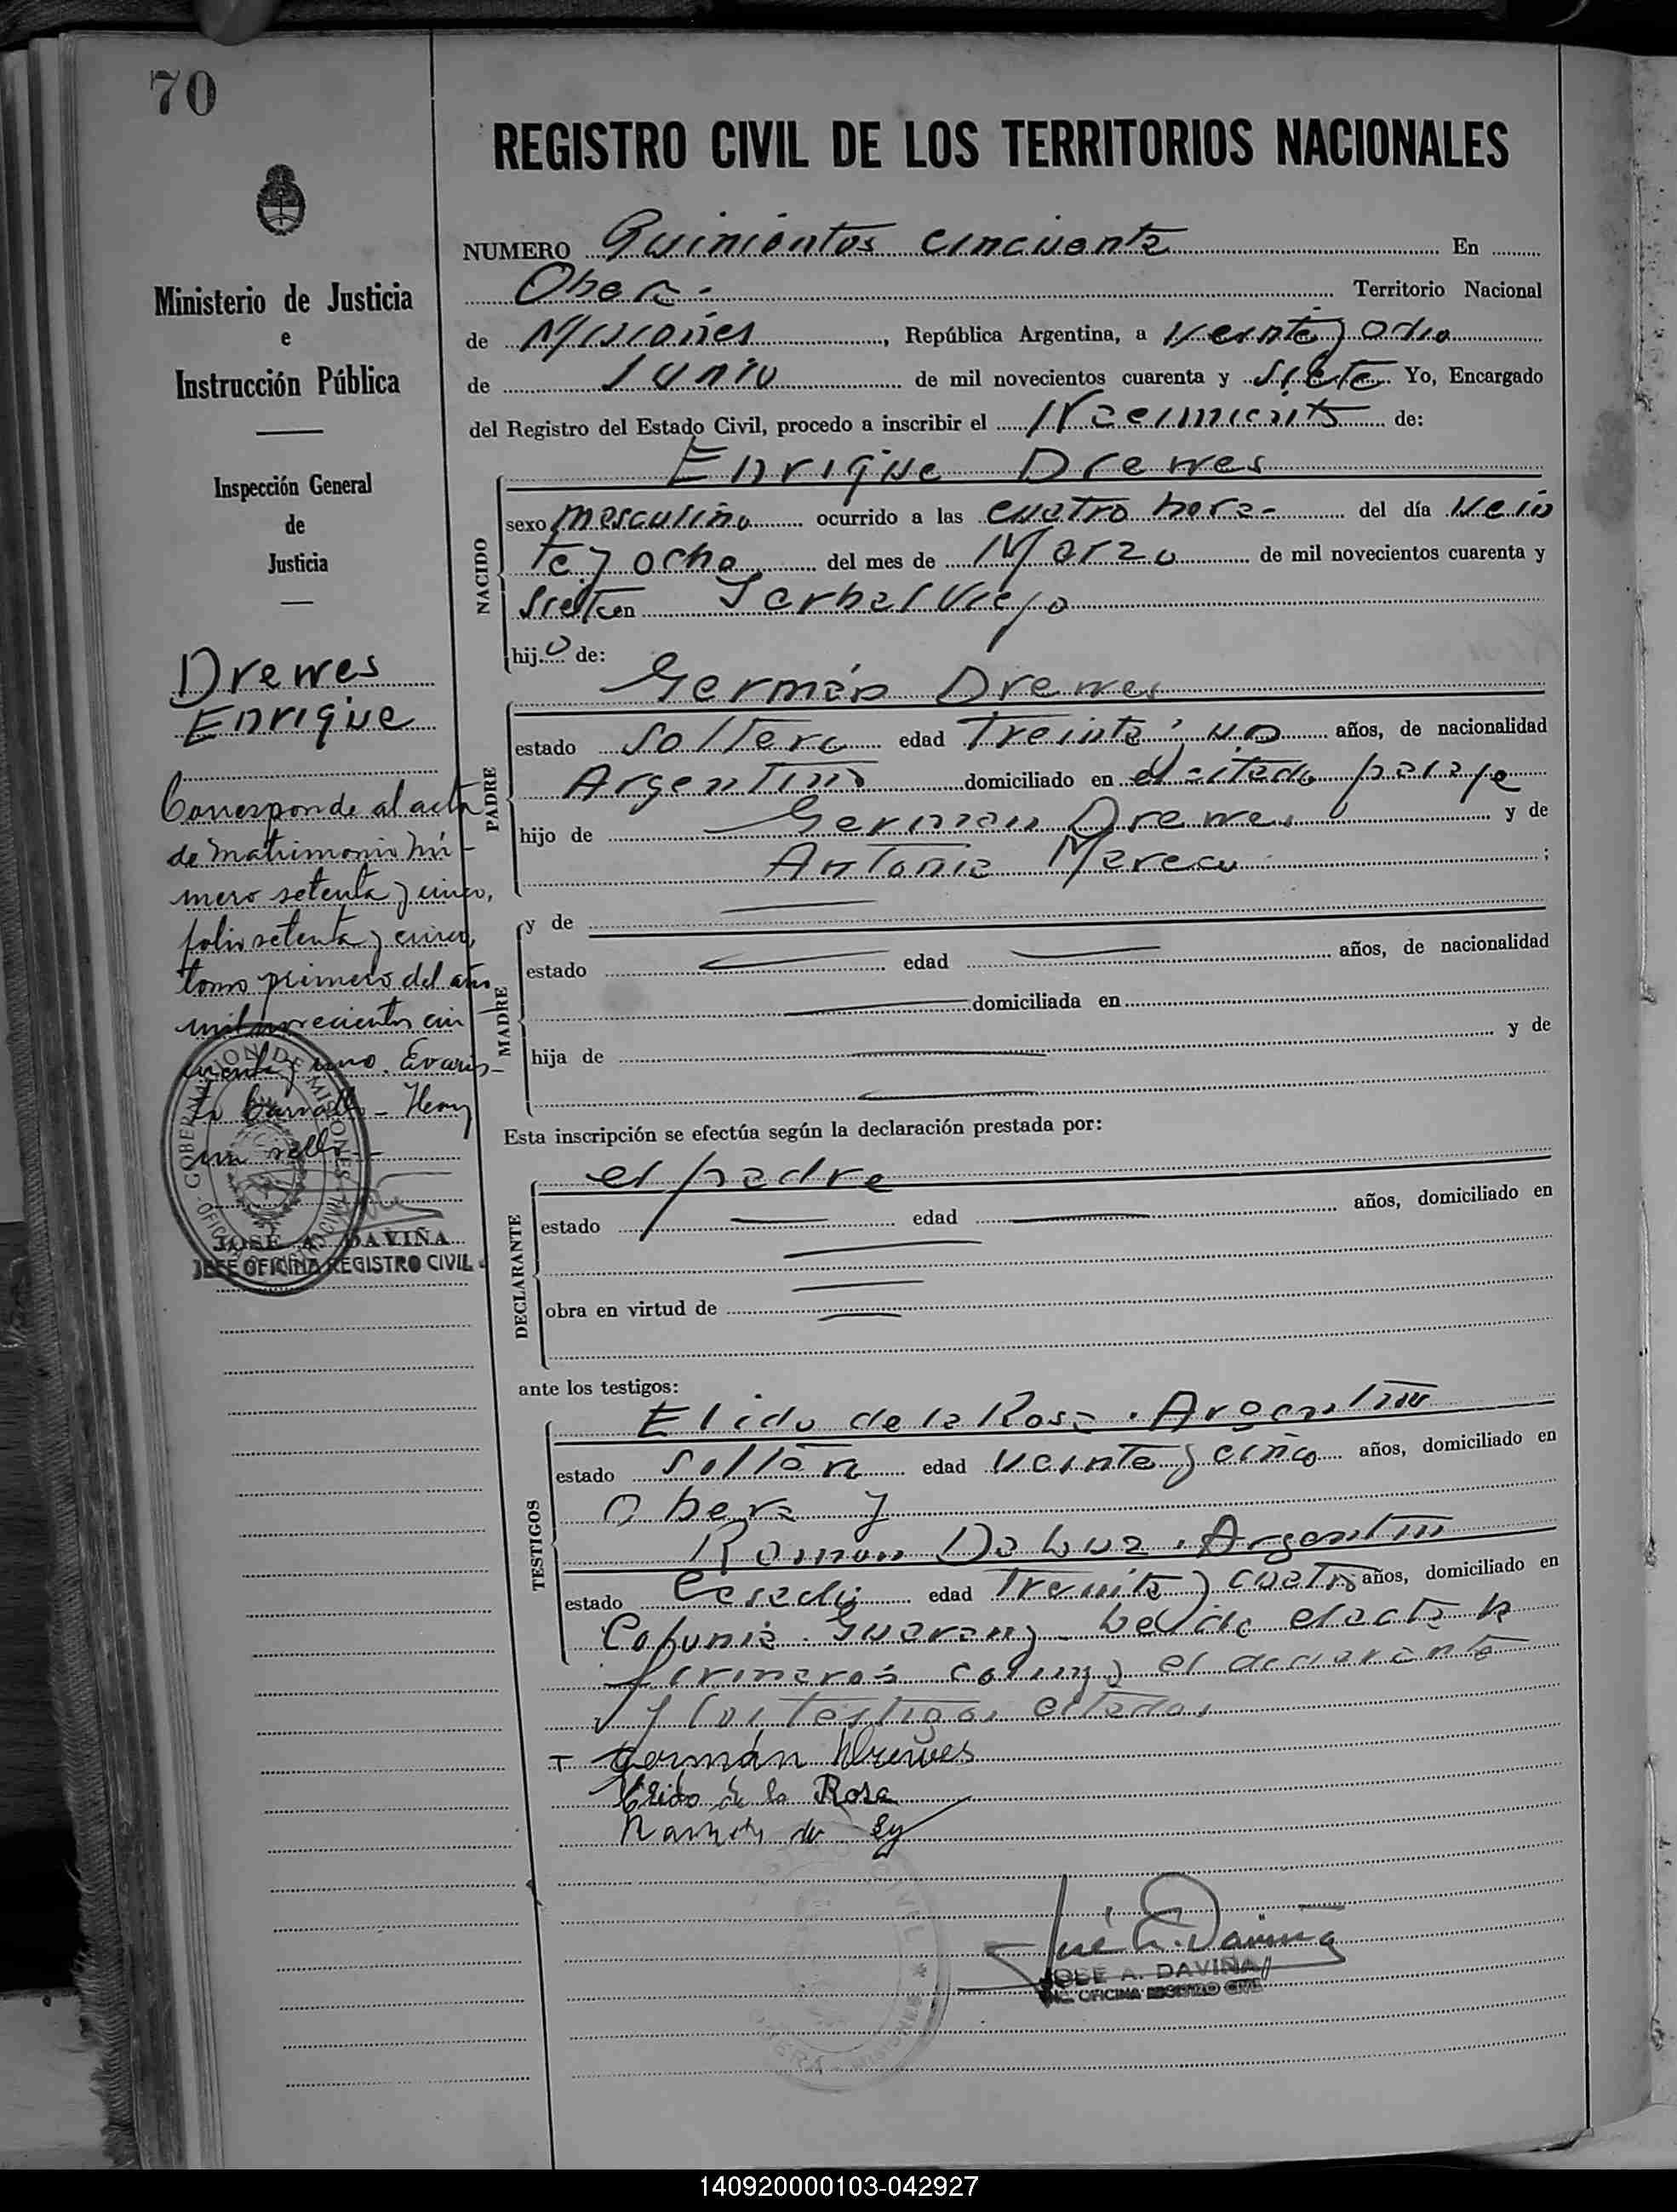 70
REGISTRO CIVIL DE LOS TERRITORIOS NACIONALES
Ministerio de Justicia
e
Instrucción Pública
Inspección General
de
Justicia
Drewes
Enrique
Corresponde al acta
de matrimonio nú-
mero setenta y cinco,
folio setenta y cinco,
tomo primero del año
mil novecientos cin
cuenta y uno. Evaris-
to Carvallo - Hay
un sello -
JOSÉ A. DAVIÑA
JEFE OFICINA REGISTRO CIVIL
NUMERO Quinientos cincuenta En
Obera - Territorio Nacional
de Misiones, República Argentina, a veinte y ocho
de Junio de mil novecientos cuarenta y siete Yo, Encargado
del Registro del Estado Civil, procedo a inscribir el Nacimiento de:
NACIDO
Enrique Drewes
sexo masculino ocurrido a las cuatro horas del día vein
te y ocho del mes de Marzo de mil novecientos cuarenta y
siete en Yerbal Viejo
hijo de:
PADRE
Germán Drewes
estado soltero edad treinta y un años, de nacionalidad
Argentino domiciliado en el citado paraje
hijo de German Drewes y de
Antonia Mereco ;
MADRE
y de
estado edad años, de nacionalidad
domiciliada en
hija de y de
Esta inscripción se efectúa según la declaración prestada por:
DECLARANTE
el padre
estado edad años, domiciliado en
obra en virtud de
ante los testigos:
TESTIGOS
Elido de la Rosa . Argentino
estado soltero edad veinte y cinco años, domiciliado en
Obera y
Roman Da Luz . Argentino
estado casado edad treinta y cuatro años, domiciliado en
Colonia Guarany - Leida el acta la
firmaron conmigo el declarante
y los testigos citados
Germán Drewes
Elido de la Rosa
José A. Daviña
JOSE A. DAVIÑA
OFICINA REGISTRO CIVIL
140920000103-042927